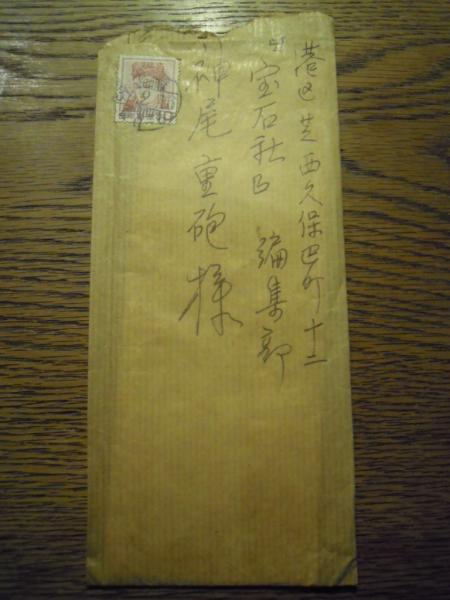 港区芝西久保巴町十二
"宝石社" 編集部
神尾重砲様